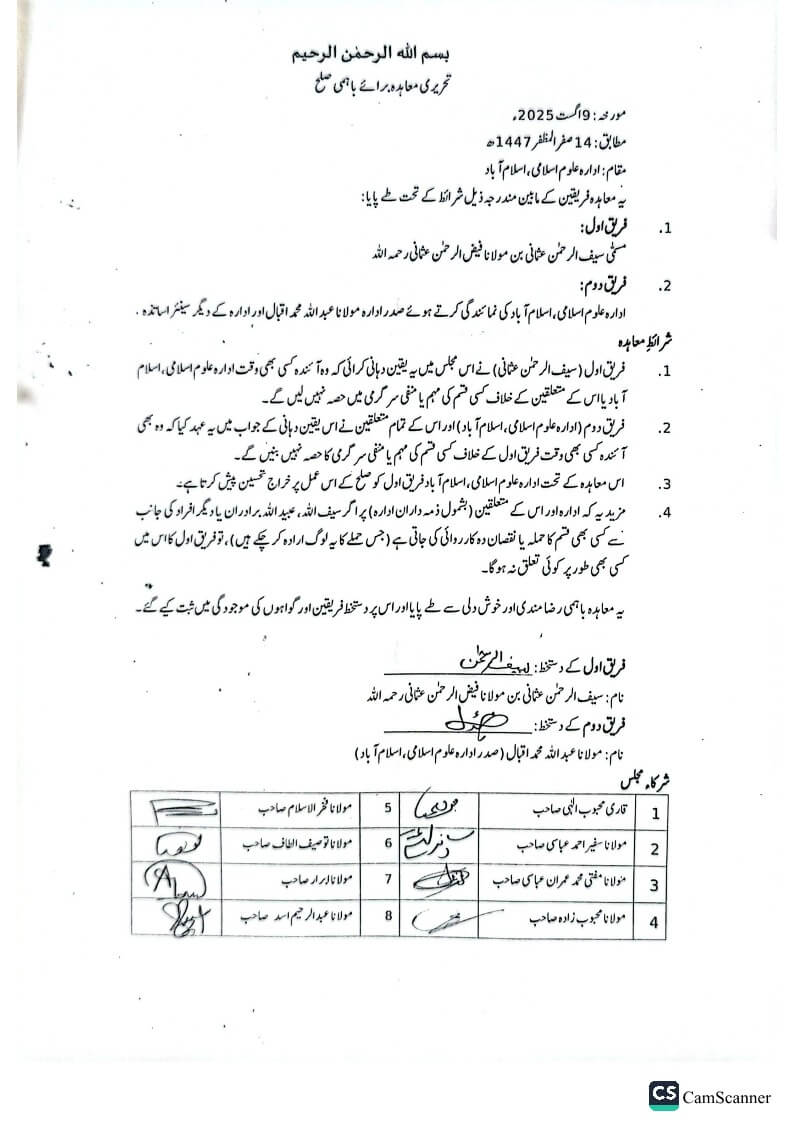 بسم اللہ الرحمٰن الرحیم
تحریری معاہدہ برائے باہمی صلح
مورخہ: 9 اگست 2025ء
مطابق: 14 صفر المظفر 1447ھ
مقام: ادارہ علوم اسلامی، اسلام آباد
یہ معاہدہ فریقین کے مابین مندرجہ ذیل شرائط کے تحت طے پایا:
1. فریق اول:
مسمّٰی سیف الرحمٰن عثمانی بن مولانا فیض الرحمٰن عثمانی رحمہ اللہ
2. فریق دوم:
ادارہ علوم اسلامی، اسلام آباد کی نمائندگی کرتے ہوئے صدر ادارہ مولانا عبداللہ محمد اقبال اور ادارہ کے دیگر سینئر اساتذہ۔
شرائطِ معاہدہ
1. فریق اول (سیف الرحمٰن عثمانی) نے اس مجلس میں یہ یقین دہانی کرائی کہ وہ آئندہ کسی بھی وقت ادارہ علوم اسلامی، اسلام
آباد یا اس کے متعلقین کے خلاف کسی قسم کی مہم یا منفی سرگرمی میں حصہ نہیں لیں گے۔
2. فریق دوم (ادارہ علوم اسلامی، اسلام آباد) اور اس کے تمام متعلقین نے اس یقین دہانی کے جواب میں یہ عہد کیا کہ وہ بھی
آئندہ کسی بھی وقت فریق اول کے خلاف کسی قسم کی مہم یا منفی سرگرمی کا حصہ نہیں بنیں گے۔
3. اس معاہدہ کے تحت ادارہ علوم اسلامی، اسلام آباد فریق اول کو صلح کے اس عمل پر خراجِ تحسین پیش کرتا ہے۔
4. مزید یہ کہ ادارہ اور اس کے متعلقین (بشمول ذمہ داران ادارہ) پر اگر سیف اللہ، عبید اللہ برادران یا دیگر افراد کی جانب
سے کسی بھی قسم کا حملہ یا نقصان دہ کارروائی کی جاتی ہے (جس حملے کا یہ لوگ ارادہ کر چکے ہیں)، تو فریق اول کا اس میں
کسی بھی طور پر کوئی تعلق نہ ہو گا۔
یہ معاہدہ باہمی رضامندی اور خوش دلی سے طے پایا اور اس پر دستخط فریقین اور گواہوں کی موجودگی میں ثبت کیے گئے۔
فریق اول کے دستخط: سیف الرحمٰن
نام: سیف الرحمٰن عثمانی بن مولانا فیض الرحمٰن عثمانی رحمہ اللہ
فریق دوم کے دستخط:
نام: مولانا عبداللہ محمد اقبال (صدر ادارہ علوم اسلامی، اسلام آباد)
شرکاء مجلس
1 قاری محبوب الٰہی صاحب 5 مولانا فخر الاسلام صاحب
2 مولانا سفیر احمد عباسی صاحب 6 مولانا توصیف الطاف صاحب
3 مولانا مفتی محمد عمران عباسی صاحب 7 مولانا ابرار صاحب
4 مولانا محبوب زادہ صاحب 8 مولانا عبدالرحیم اسد صاحب
CS CamScanner